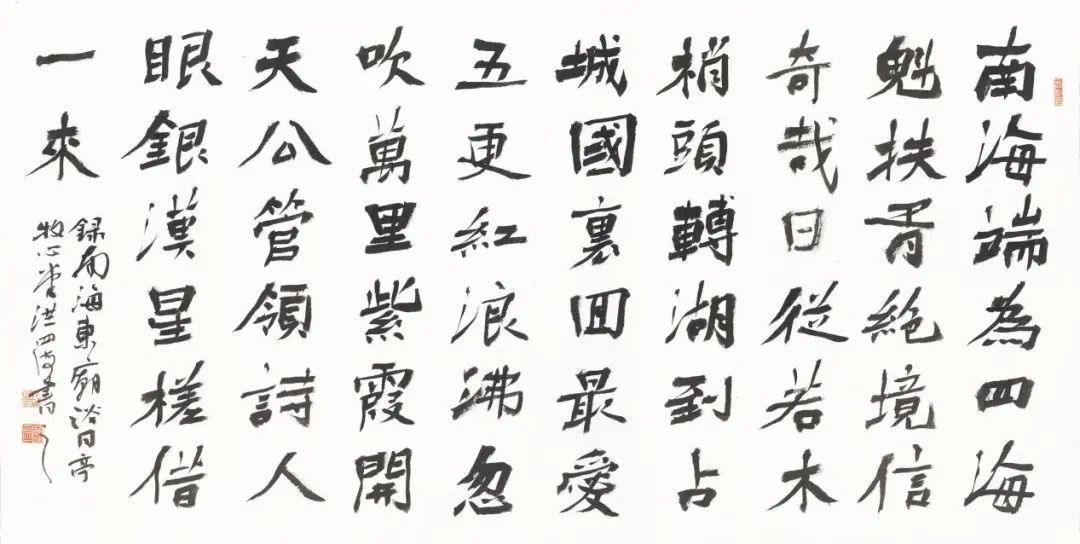 南海端為四海
魁扶胥絕境信
奇哉日從若木
梢頭轉湖到占
城國裏回最愛
五更紅浪沸忽
吹萬里紫霞開
天公管領詩人
眼銀漢星槎借
一來
録南海東廟浴日亭
牧心堂洪四書